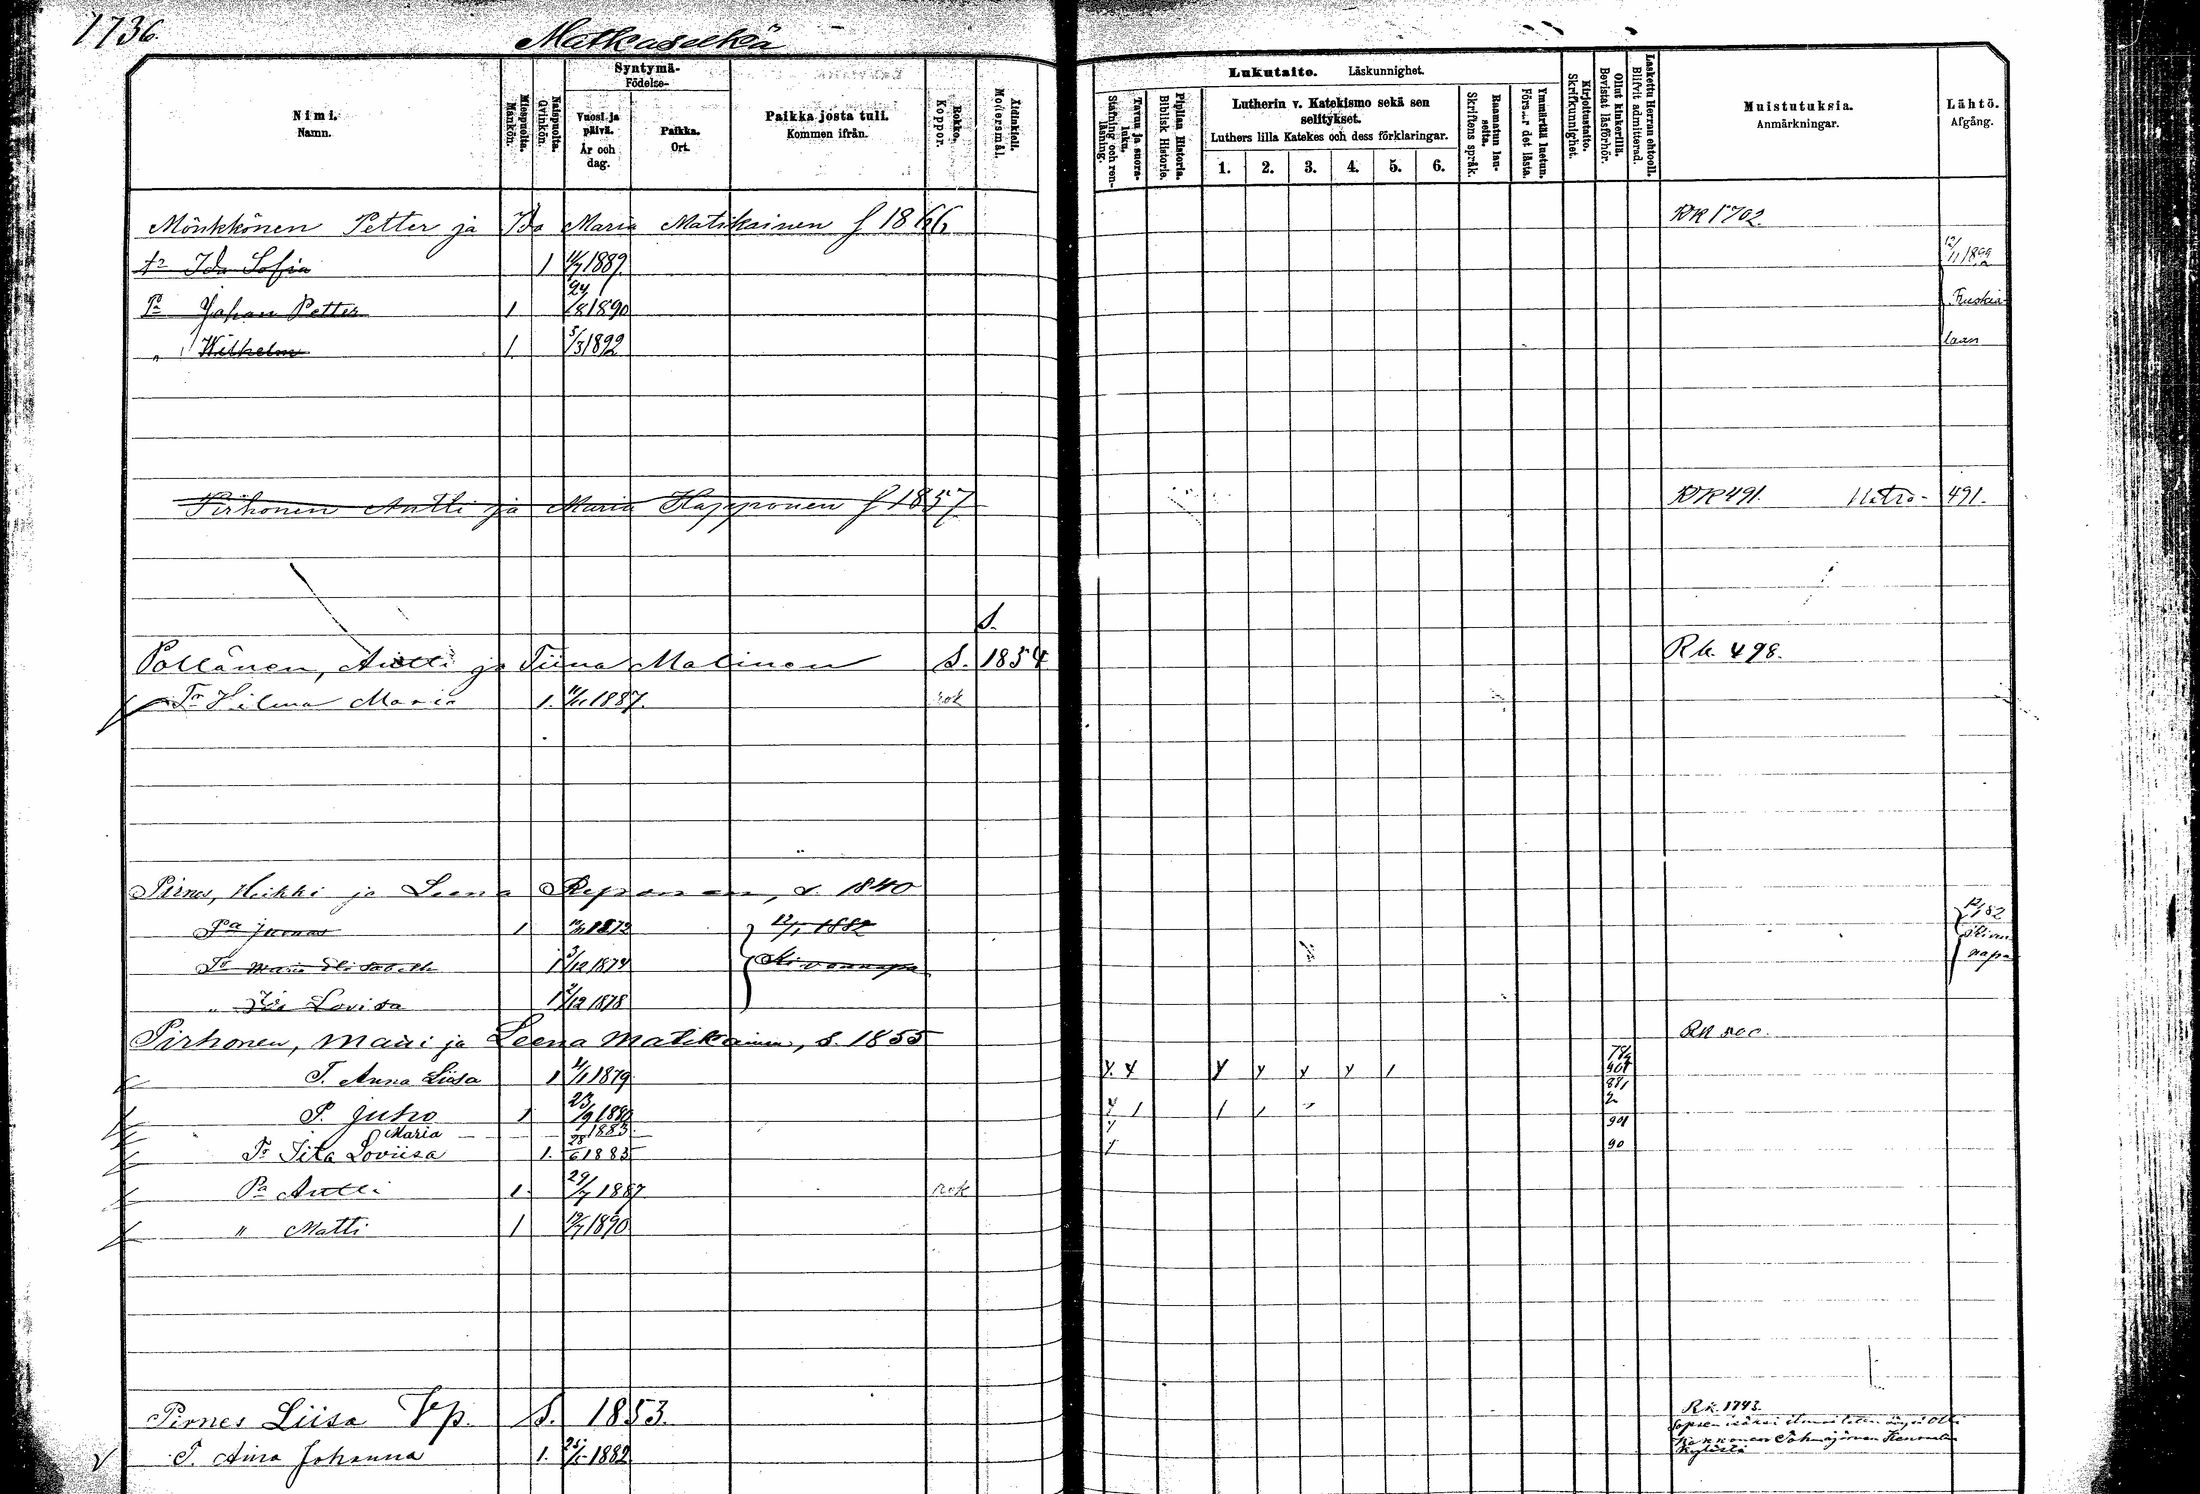 1736.
Matkaselkä
Nimi.
Namn.
Miespuolia.
Mankön.
Naispuolia.
Qvinkön.
Syntymä-
Födelse-
Vuosi ja päivä.
År och dag.
Paikka.
Ort.
Paikka josta tuli.
Kommen ifrån.
Rokko.
Koppor.
Äidinkieli.
Modersmål.
Lukutaito. Läskunnighet.
Tavuu ja suora-luku.
Stafning och ren-läsning.
Piplian Historia.
Biblisk Historie.
Lutherin v. Katekismo sekä sen selitykset.
Luthers lilla Katekes och dess förklaringar.
1. 2. 3. 4. 5. 6.
Raamatun lauseita.
Skriftens språk.
Ymmärtää luetun.
Förstår det lästa.
Kirjoitustaito.
Skrifkunnighet.
Ollut kinkerillä.
Bevistat läsförhör.
Laskettu Herran ehtooll.
Blifvit admitterad.
Muistutuksia.
Anmärkningar.
Lähtö.
Afgång.
Mönkkönen Petter ja Ida Maria Matikainen f 1866 RK 1702.
tr Ida Sofia 1 4/7 1889. 12/11 1892
Pa Johan Petter 1 24/8 1890 Ruskea-
„ Wilhelm 1. 5/3 1892 laan
Pirhonen Antti ja Maria Happonen f 1857 RK 491. 491.
Pollänen, Antti ja Tiina Malinen S. 1854 Rk. 498.
S.
Tr Hilma Maria 1. 1887. rok
Pirnes, Heikki ja Leena Reponen, s. 1840
Pa Junnas 1 1872 12/1 1882 12/1 82
Tr Maria Elisabeth 1 3/12 1874 Kivennapa Kiven-
„ Ida Lovisa 1 2/12 1878 napa
Pirhonen, Matti ja Leena Matikainen, s. 1855 RK 500.
T. Anna Liisa 1 1879.
P. Juho 1 23/9 1880
Maria 1883.
Tr Iita Loviisa 1. 28/6 1883 90
Pa Antti 1. 29/7 1887. rok
„ Matti 1 19/7 1890
Pirnes Liisa Vp. S. 1853. Rk. 1743.
T. Aina Johanna 1. 25/5 1882.
Kylästä